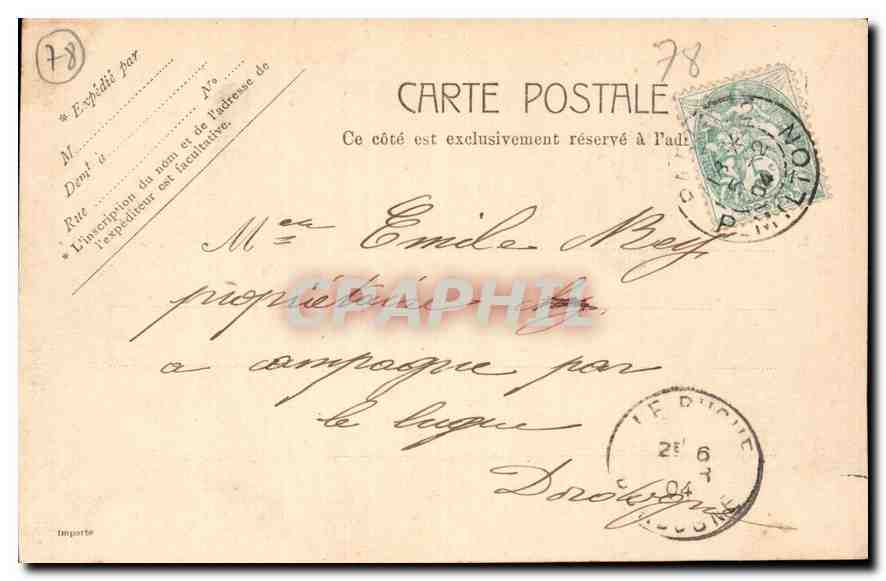 78
78
* Expédié par
M
Demt à
Rue Nº
* L'inscription du nom et de l'adresse de
l'expéditeur est facultative.
CARTE POSTALE
Ce côté est exclusivement réservé à l'adr
MILTON
04
Emile Rey
propriétaire
a campagne par
le bugue
Dordogne
CPAPHIL
LE BUGUE
2E 6
04
DOGNE
Importe